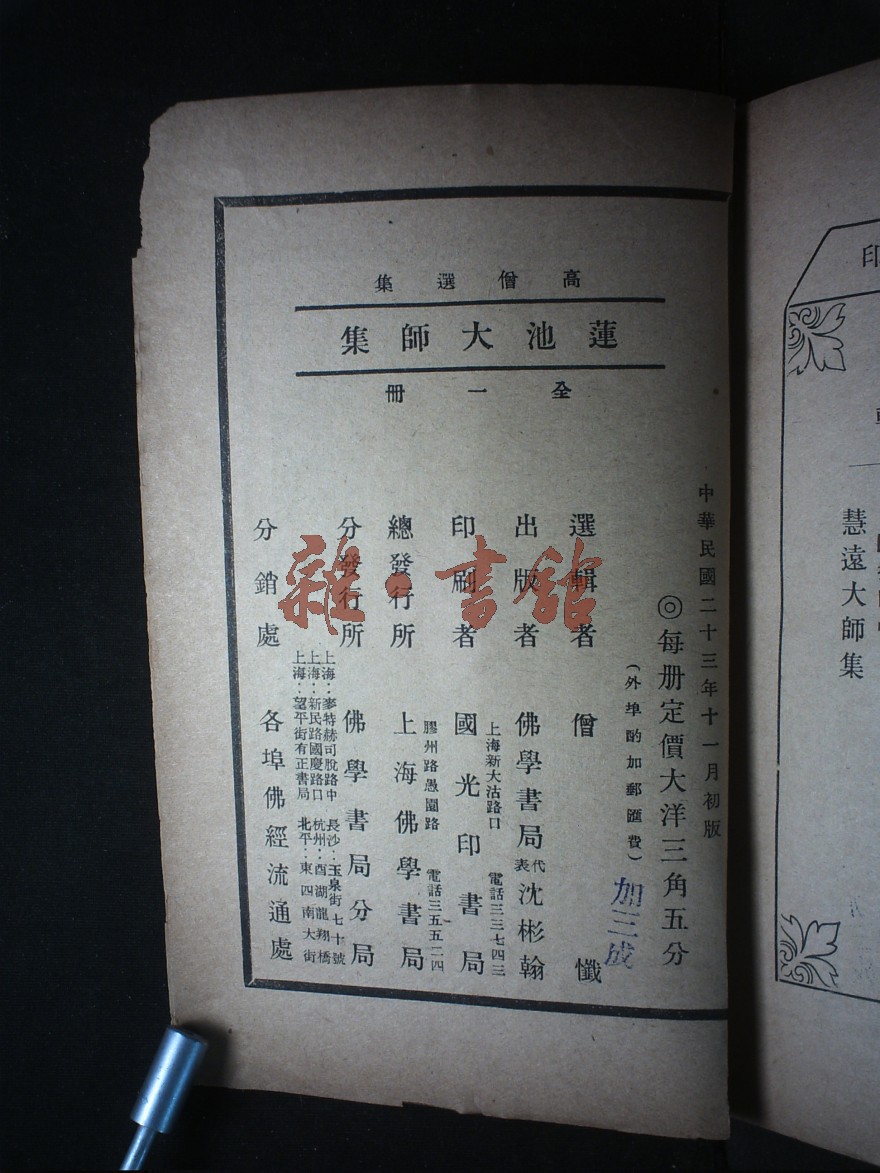 高僧選集
蓮池大師集
全一冊
中華民國二十三年十一月初版
◎每册定價大洋三角五分
(外埠酌加郵匯費)
加三成
選輯者 僧懺
出版者 佛學書局 代表 沈彬翰
上海新大沽路口 電話三三七四三
印刷者 國光印書局
膠州路愚園路 電話三五五二四
總發行所 上海佛學書局
分發行所 佛學書局分局
上海：麥特赫司脫路中 長沙：玉泉街七十號
上海：新民路國慶路口 杭州：西湖龍翔橋
上海：望平街有正書局 北平：東四南大街
分銷處 各埠佛經流通處
雜·書館
印
慧遠大師集